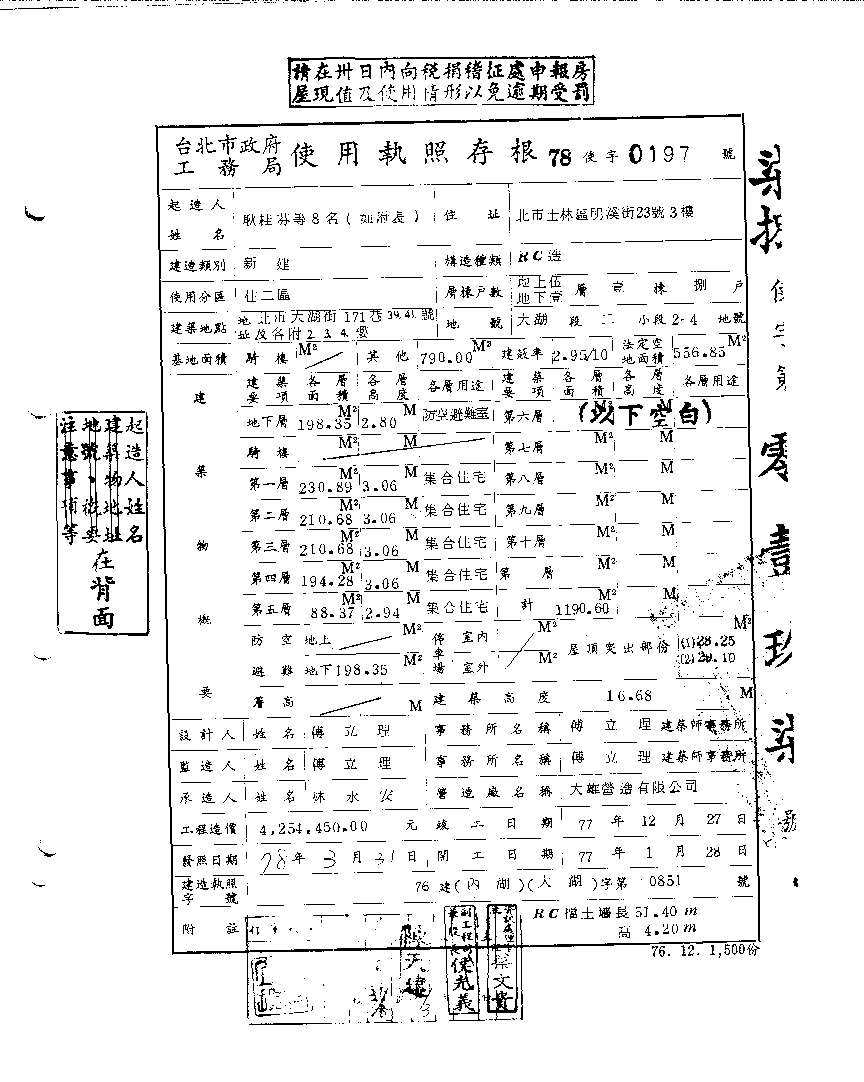 請在卅日內向稅捐稽征處申報房
屋現值及使用情形以免逾期受罰
台北市政府
工務局 使用執照存根 78 使字 0197 號
起造人姓名 耿桂芬等8名(如附表) 住址 北市士林區明溪街23號3樓
建造類別 新建 構造種類 RC造
使用分區 住二區 層棟戶數 地上伍地下壹層壹棟捌戶
建築地點 地址 北市大湖街171巷39.41號及各附2.3.4.號 地號 大湖段二小段2-4地號
基地面積 騎樓 M² 其他 790.00 M² 建蔽率 2.95/10 法定空地面積 556.85 M²
建築物概要
建築要項 各層面積 各層高度 各層用途 建築要項 各層面積 各層高度 各層用途
地下層 198.35 M² 2.80 M 防空避難室 第六層 M² M (以下空白)
騎樓 M² M 第七層 M² M
第一層 230.89 M² 3.06 M 集合住宅 第八層 M² M
第二層 210.68 M² 3.06 M 集合住宅 第九層 M² M
第三層 210.68 M² 3.06 M 集合住宅 第十層 M² M
第四層 194.28 M² 3.06 M 集合住宅 第 層 M² M
第五層 88.37 M² 2.94 M 集合住宅 計 1190.60 M² M
防空 地上 M² 停車場 室內 M² 屋頂突出部份 (1)28.25 M²
避難 地下 198.35 M² 室外 M² (2)29.10
簷高 M 建築高度 16.68 M
設計人 姓名 傅立理 事務所名稱 傅立理建築師事務所
監造人 姓名 傅立理 事務所名稱 傅立理建築師事務所
承造人 姓名 林水 營造廠名稱 大雄營造有限公司
工程造價 4,254,450.00 元 竣工日期 77年12月27日
發照日期 78年3月31日 開工日期 77年1月28日
建造執照字號 76建(內湖)(大湖)字第0851號
附註 RC擋土牆長51.40m
高 4.20m
76. 12. 1,500份
起造人姓名
建築物地址
地號、概要
注意事項等
在背面
柒捌使字第零壹玖柒號